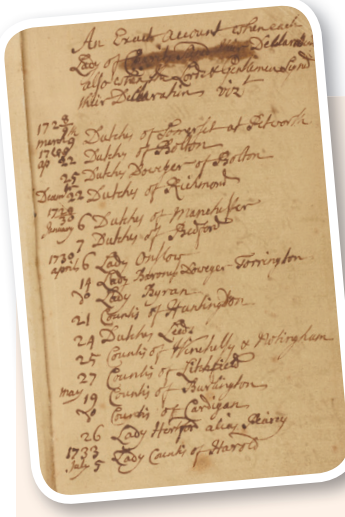 An Exact Account when each
Lady of Declared
also when the Lords & Gentlemen Sign'd
their Declaration viz
172 8/9
March 9 Dutches of Somerset at Petworth
ap 22 Dutches of Bolton
25 Dutches Dowager of Bolton
Decem 22 Dutches of Richmond
January 6 Dutches of Manchester
7 Dutches of Bedford
1730
april 6 Lady Onslow
14 Lady Barony Dowager Torrington
Do Lady Byran
21 Countis of Huntington
24 Dutches Leeds
25 Countis of Winchelly & Notingham
27 Countis of Litchfield
may 19 Countis of Burlington
Do Countis of Cardigan
26 Lady Harper alias
1733
July 5 Lady Countis of Harold